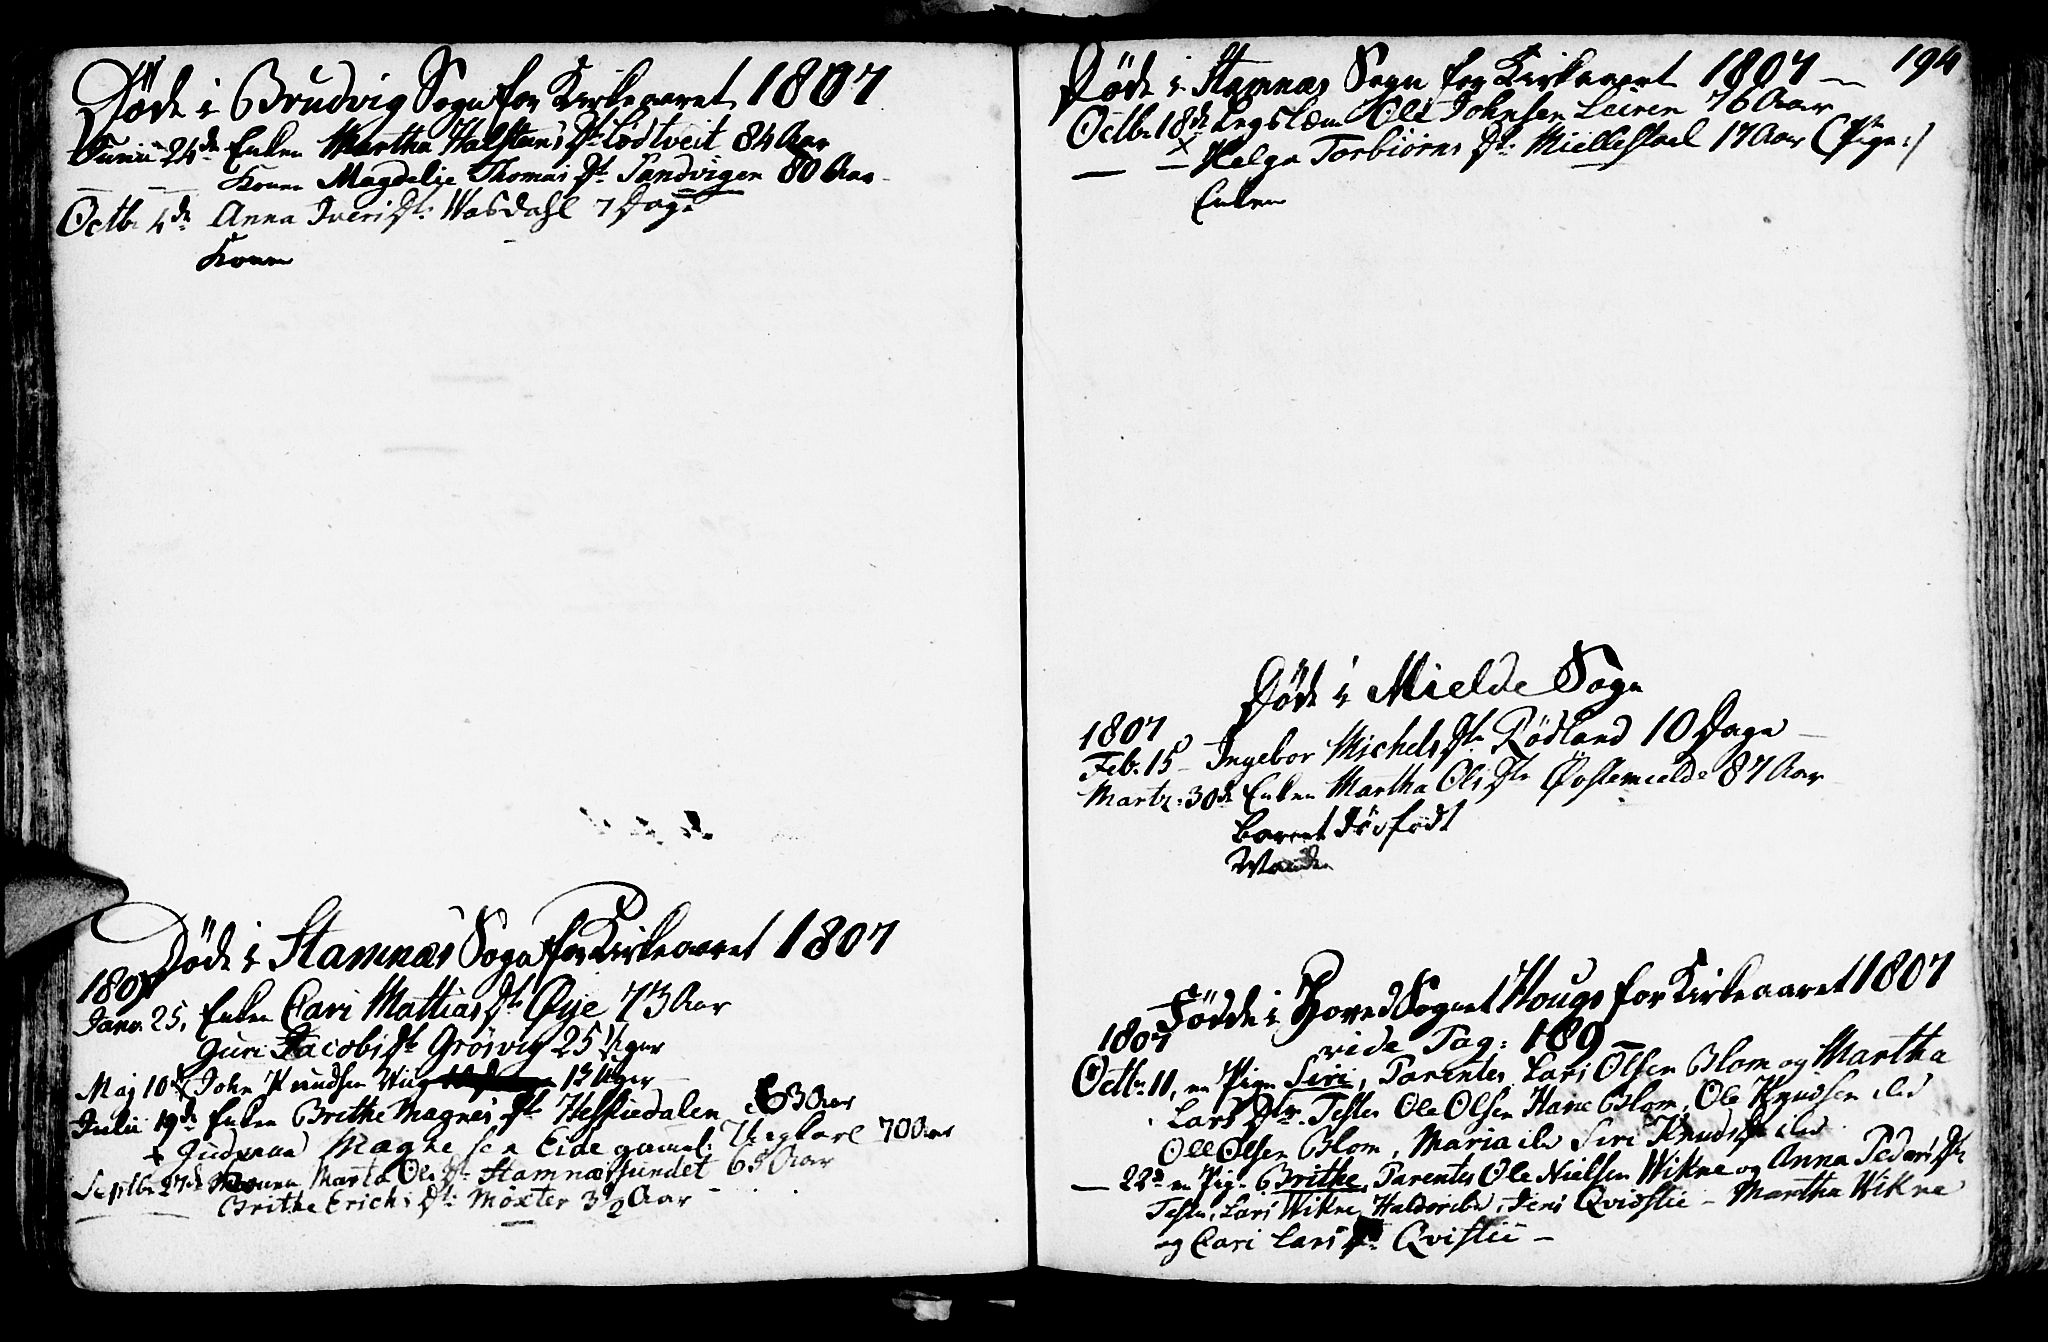 Døde i Brudvig Sogn for Kirkeaaret 1807
Junii 24de Enken Martha Halstens Dtr Lodtveit 84 Aar
— — Konen Magdelie Thomas Dtr Sandvigen 80 Aar
Octbr 4de Anna Iveri Dtr Wasdahl 7 Dage
Konen
Døde i Stamnæs Sogn for Kirkeaaret 1807
1807
Janv. 25, Enken Cari Mattias Dtr Øye 73 Aar
Guri Jacobs Dtr Grøsvig 25 Uger
Maj 10 John Knudsen 13 Uger
Julii 19de Enken Brithe Magnes Dtr Hesliedalen 63 Aar
+ Magne Eide gamel Ungkarl 70 Aar
Septbr 27de Konen Marta Ols Dtr Stamnæssundet 65 Aar
— — Brithe Erichs Dtr Moxter 3½ Aar
194
Døde i Stamnæs Sogn for Kirkeaaret 1807 —
Octbr 18de Legslem Ole Johnsen Leiren 76 Aar
— — Helga Torbiørns Dtr Miellestael 17 Aar (Pige:)
Enken
Døde i Mielde Sogn
1807
Feb. 15 — Ingebor Michels Dtr Rødland 10 Dage —
Martz. 30de Enken Martha Ols Dtr Øvstemielde 87 Aar
Barnet dødfødt
Manden
Fødde i HovedSognet Hougs for Kirkeaaret 1807
1807 vide Pag: 189 —
Octbr. 11, en Pige Siri, Parentes Lars Olsen Blom og Martha
Lars Dtr. Testes Ole Olsen Hane Blom, Ole Knudsen ibd
Ole Olsen Blom, Maria ibd Siri Knuds Dtr ibd
— 22de en Pige Brithe, Parentes Ole Nielsen Wikne og Anna Peders Dtr
Testes, Lars Wikne, Haldor ibd, Jens Qvidstie — Martha Wikne
og Cari Lars Dtr Qvistii —